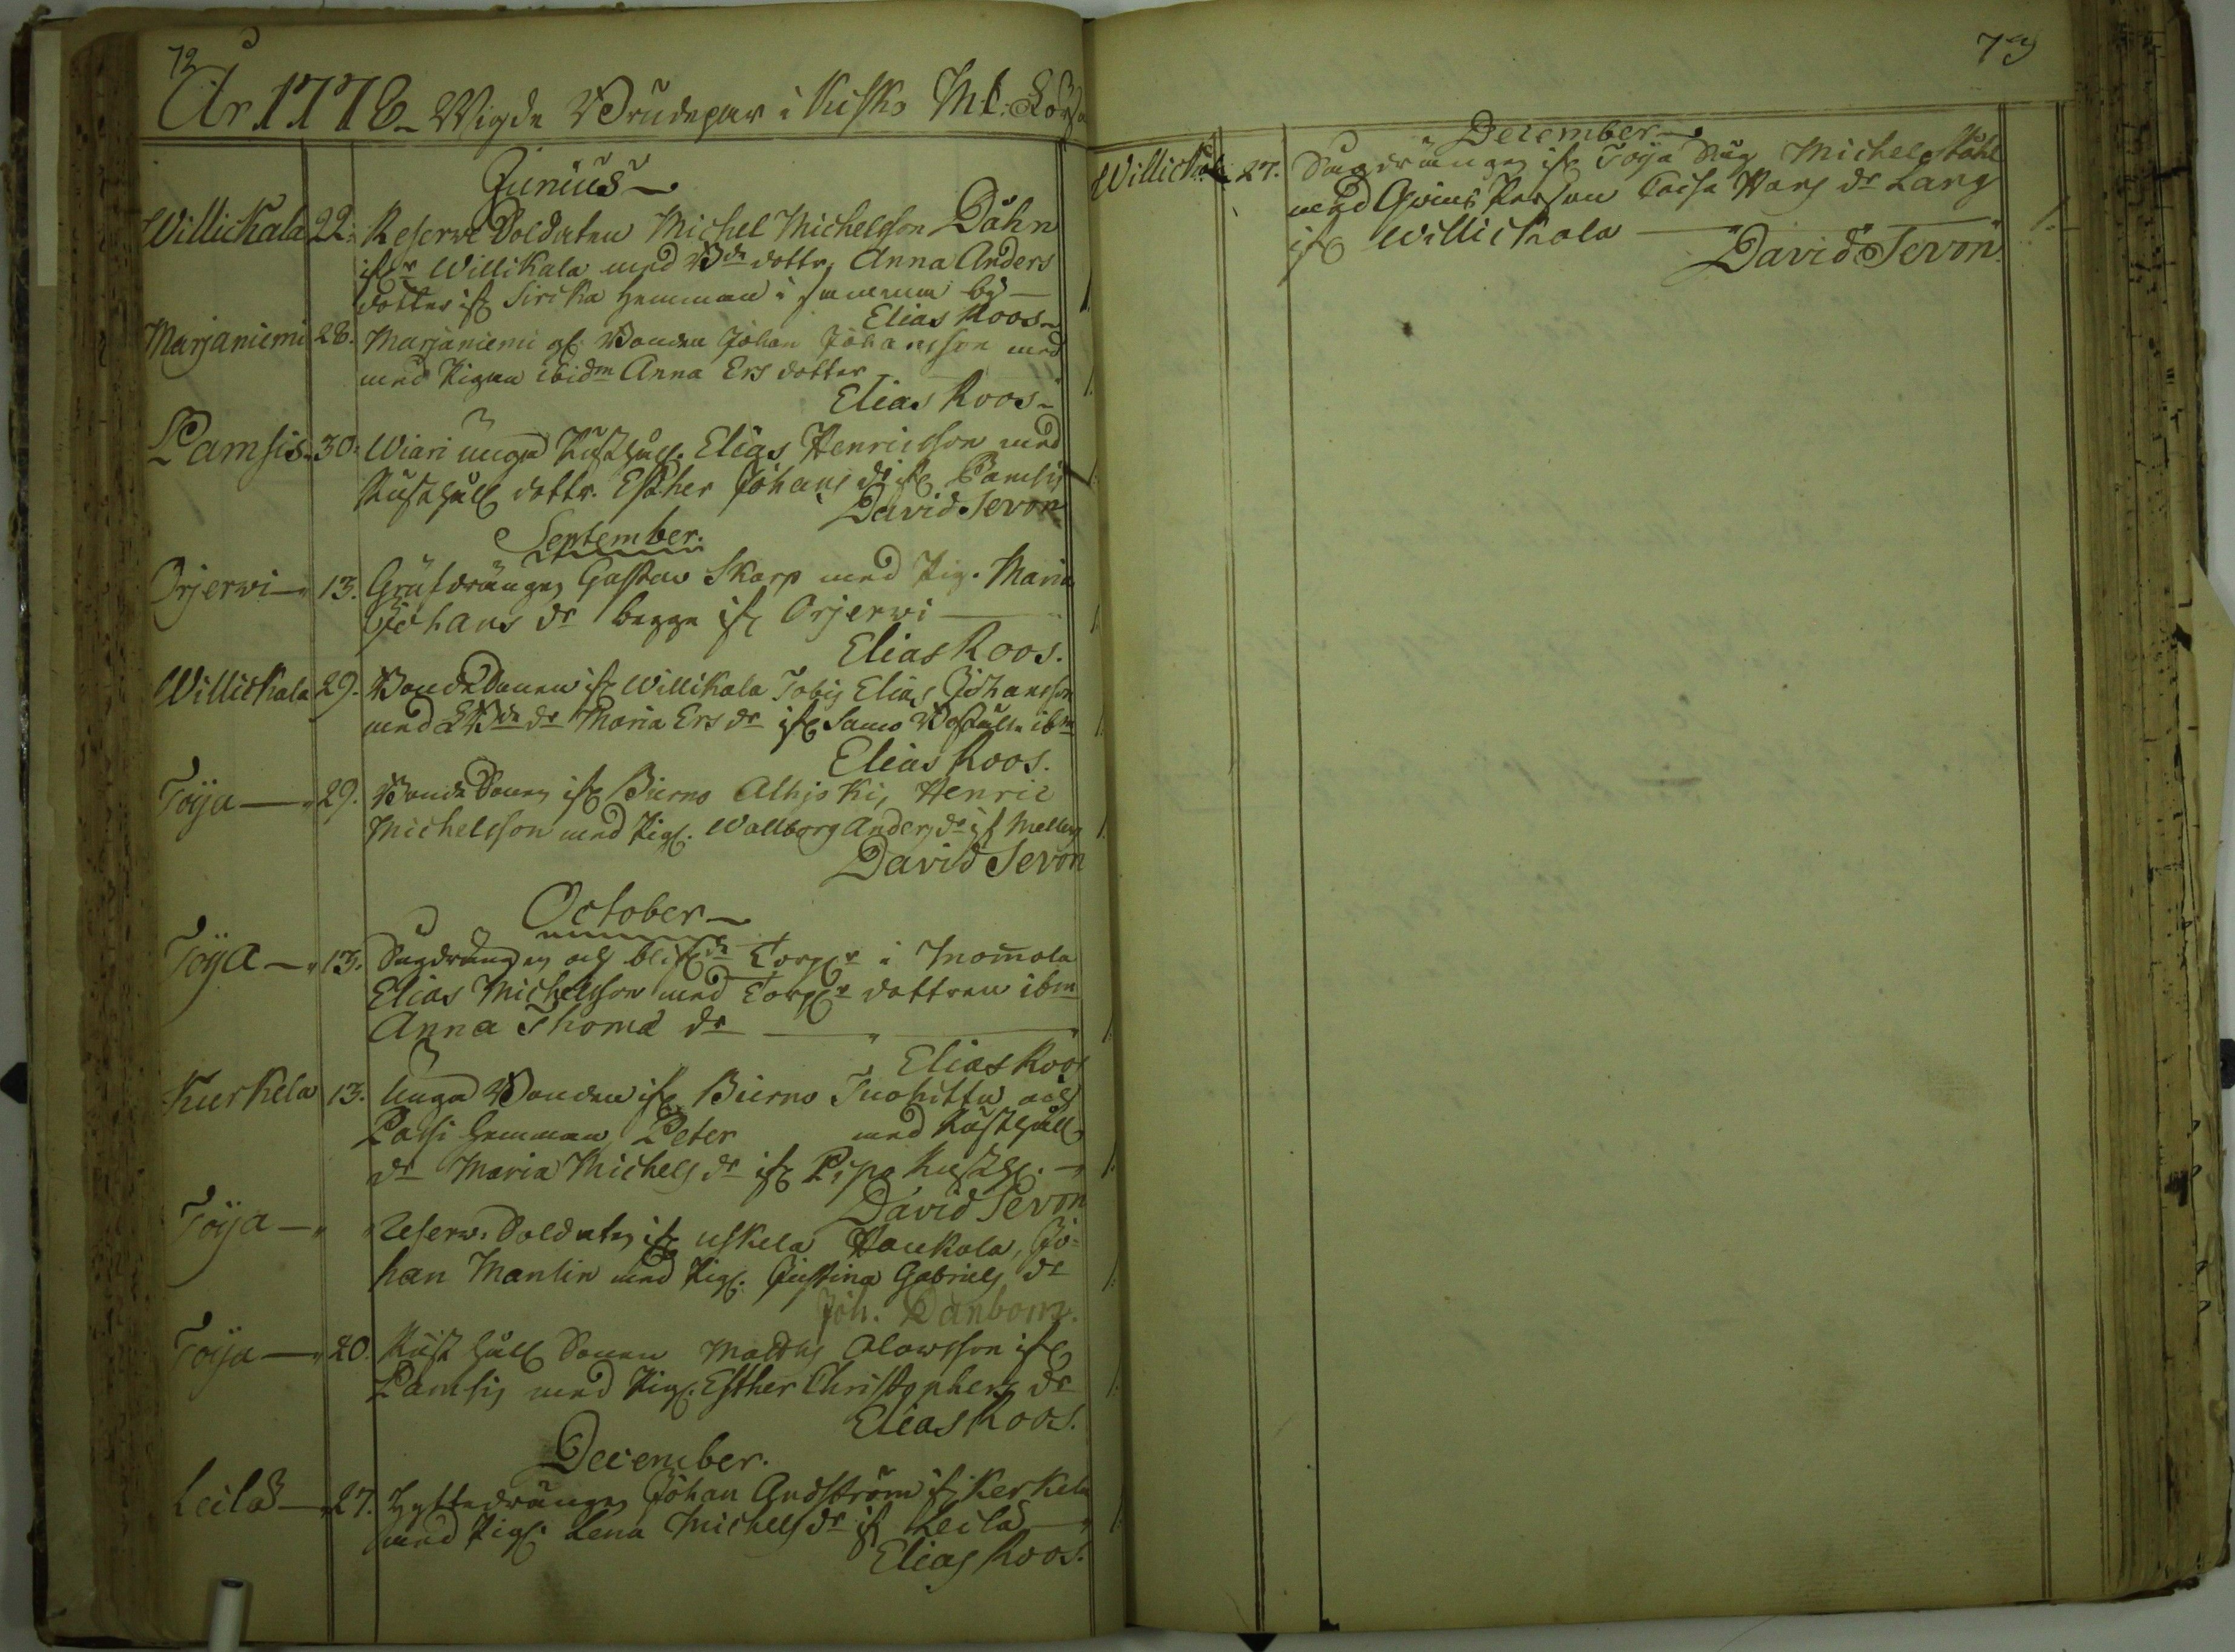 72
År 1778 Wigde Brudepar i Kisko M.C. Förs
Junius
Willickala 22. Reserve Soldaten Michel Michelsson Dähn
ifr Willikala med Bde dottr. Anna Anders
dotter ifr Siricka hemman i samma by
Elias Roos
Marjaniemi 28. Marjaniemi gl. Bonden Johan Johansson med
med Pigan ibidm Anna Ers dotter
Elias Roos
Pamsis 30. Wiari unga Rusthåll. Elias Henricsson med
Rusthåll dottr. Esther Johans dr ifr Pamsis
David Sevon
September.
Orjerwi 13. Grufdrängen Gustav Skarp med Pig. Maria
Johans dr begge ifr Orjerwi
Elias Roos.
Willickala 29. Bonde Sonen ifr Willikala Tobis Elias Johansson
med Bde dr Maria Ers dr ifr Samo ibm
Elias Roos.
Toija 29. Bonde Sonen ifr Bierno Alhjoki, Henric
Michelsson med Pig. Wallborg Anders dr if
David Sevon
October
Toija 13. Sagdrängen och blifde Torpr i Inomola
Elias Michelsson med Torpr dottren ibm
Anna Thoma dr
Elias Roos
Kurkela 13. Unga Bonden ifr Bierno Tuohittu och
hemman, Peter med Rusthåll
dr Maria Michels dr ifr Pipo Rusth.
David Sevon
Toija Reserv. Soldaten ifr Uskela Haukala, Jo-
han Manlin med Pig. Justina Gabriels dr
Joh. Danbom.
Toija 20. Rusthåll Sonen Matths Olowsson ifr
Pamsis med Pig. Esther Christophers dr
Elias Roos.
December.
Leilä 27. Hyttedrängen Johan Andström if Kerkela
med Pig. Lena Michels dr if Leilä
Elias Roos.
73
December
Willickala 27. Sagdrängen ifr Toija Såg Michel Ståhl
med Qvins Person Caisa Hans dr Lang
ifr Willickala
David Sevon.